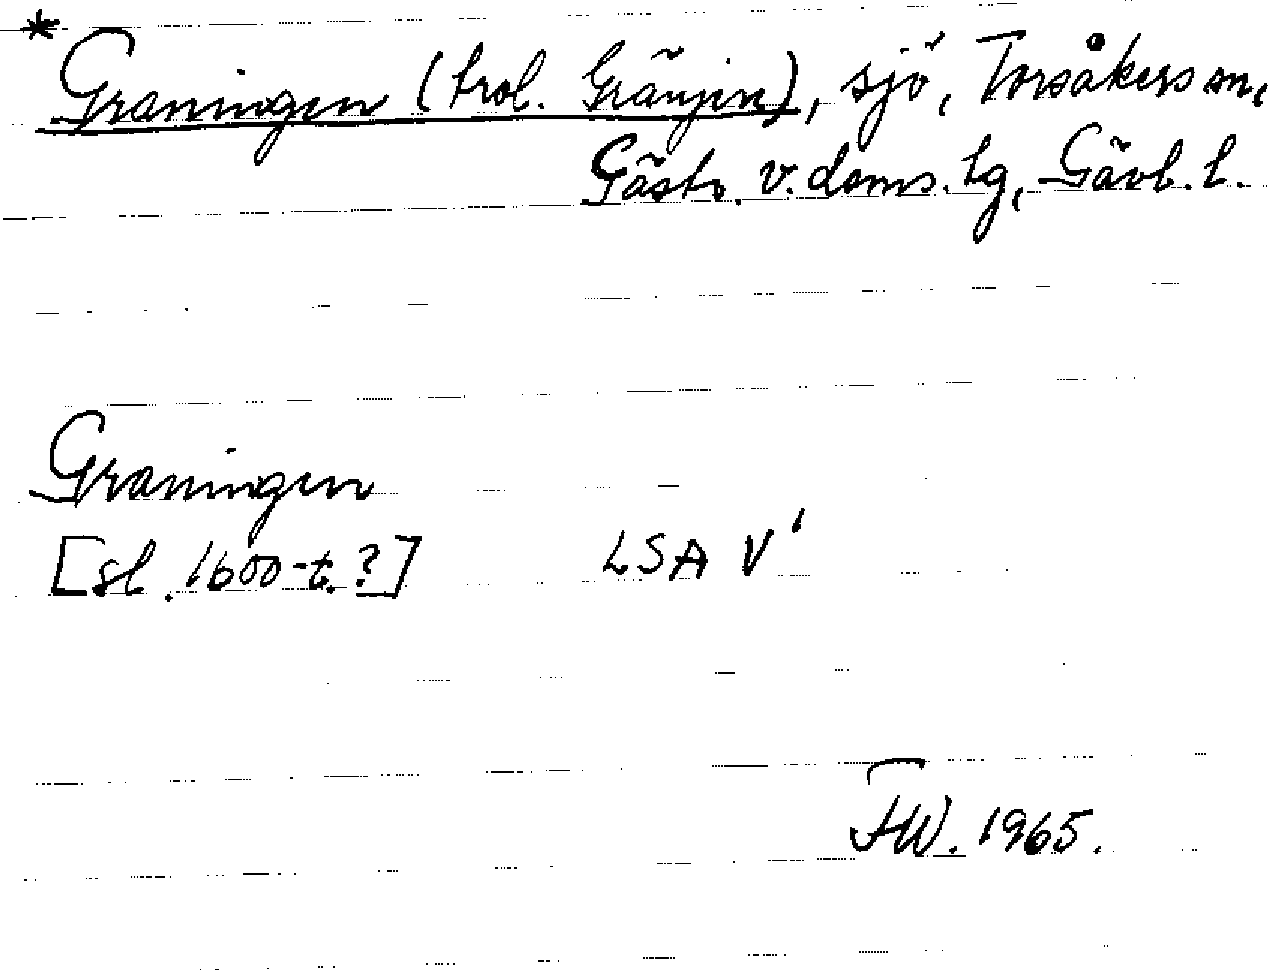 * Graningen (trol. Gränjen), sjö, Torsåkers sn,
Gästr. v. doms. tg, Gävl. l.
Graningen
[sl. 1600-t.?] LSA V¹
FW. 1965.